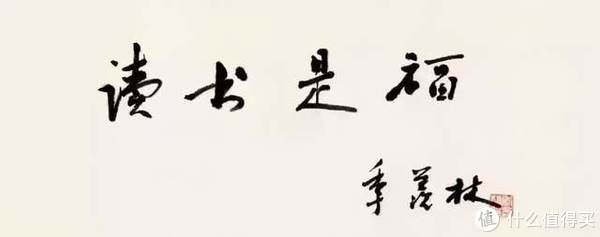 读书是福
季羡林
值 什么值得买